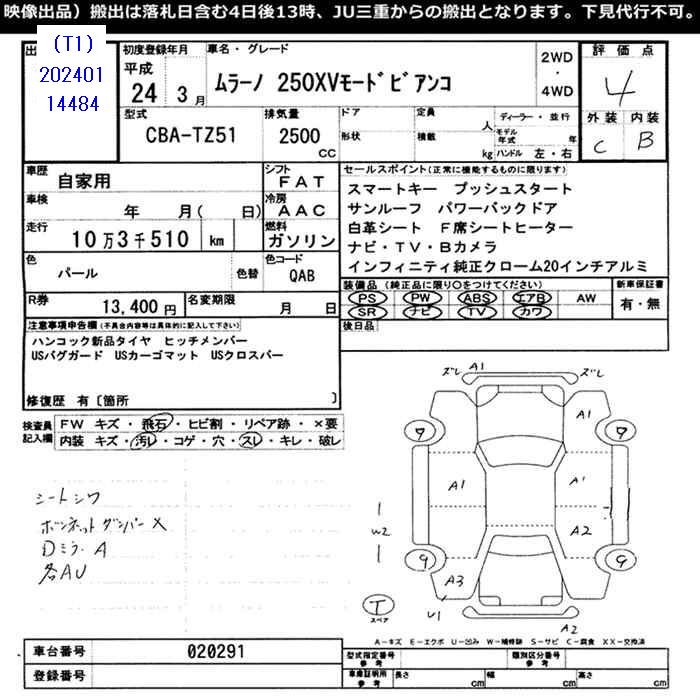 映像出品）搬出は落札日含む4日後13時、JU三重からの搬出となります。下見代行不可。
出
(T1)
202401
14484
初度登録年月
平成
24 3月
車名・グレード
ムラーノ 250XVモードビアンコ
2WD
・
4WD
評価点
4
外装 内装
C B
型式
CBA-TZ51
排気量
2500
CC
ドア
形状
定員
人
積載
kg
ディーラー・並行
モデル年式 年
ハンドル 左・右
車歴
自家用
シフト
FAT
車検
年 月( 日)
冷房
AAC
走行
10万3千510 km
燃料
ガソリン
色
パール
色替
色コード
QAB
R券
13,400円
名変期限
月 日
セールスポイント(正常に機能するものに限ります)
スマートキー プッシュスタート
サンルーフ パワーバックドア
白革シート F席シートヒーター
ナビ・TV・Bカメラ
インフィニティ純正クローム20インチアルミ
装備品(純正品に限り○をつけてください)
PS PW ABS エアB AW
SR ナビ TV カワ
新車保証書
有・無
後日品
注意事項申告欄(不具合内容等は具体的に記入して下さい)
ハンコック新品タイヤ ヒッチメンバー
USバグガード USカーゴマット USクロスバー
修復歴 有〔箇所 〕
検査員
記入欄
FW キズ・飛石・ヒビ割・リペア跡・×要
内装 キズ・汚レ・コゲ・穴・スレ・キレ・破レ
シートシワ
ボンネットダンパーX
Dミラー A
各AU
ズレ A1 ズレ
A1
7 7
A1 A1
W2
A2
9 9
A3
T
スペア
U1
A2
A－キズ E－エクボ U－凹み W－補修跡 S－サビ C－腐食 XX－交換済
車台番号
020291
登録番号
型式指定番号
参考
類別区分番号
参考
車庫証明用
参考
長さ cm
幅 cm
高さ cm